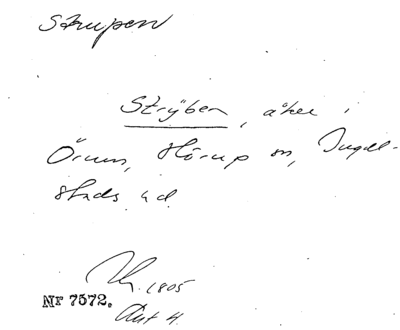 Strupen
Strÿben, åker i
Örum, Hörup sn, Ingel-
stads hd.
1805
Nr 7572.
Akt 4.